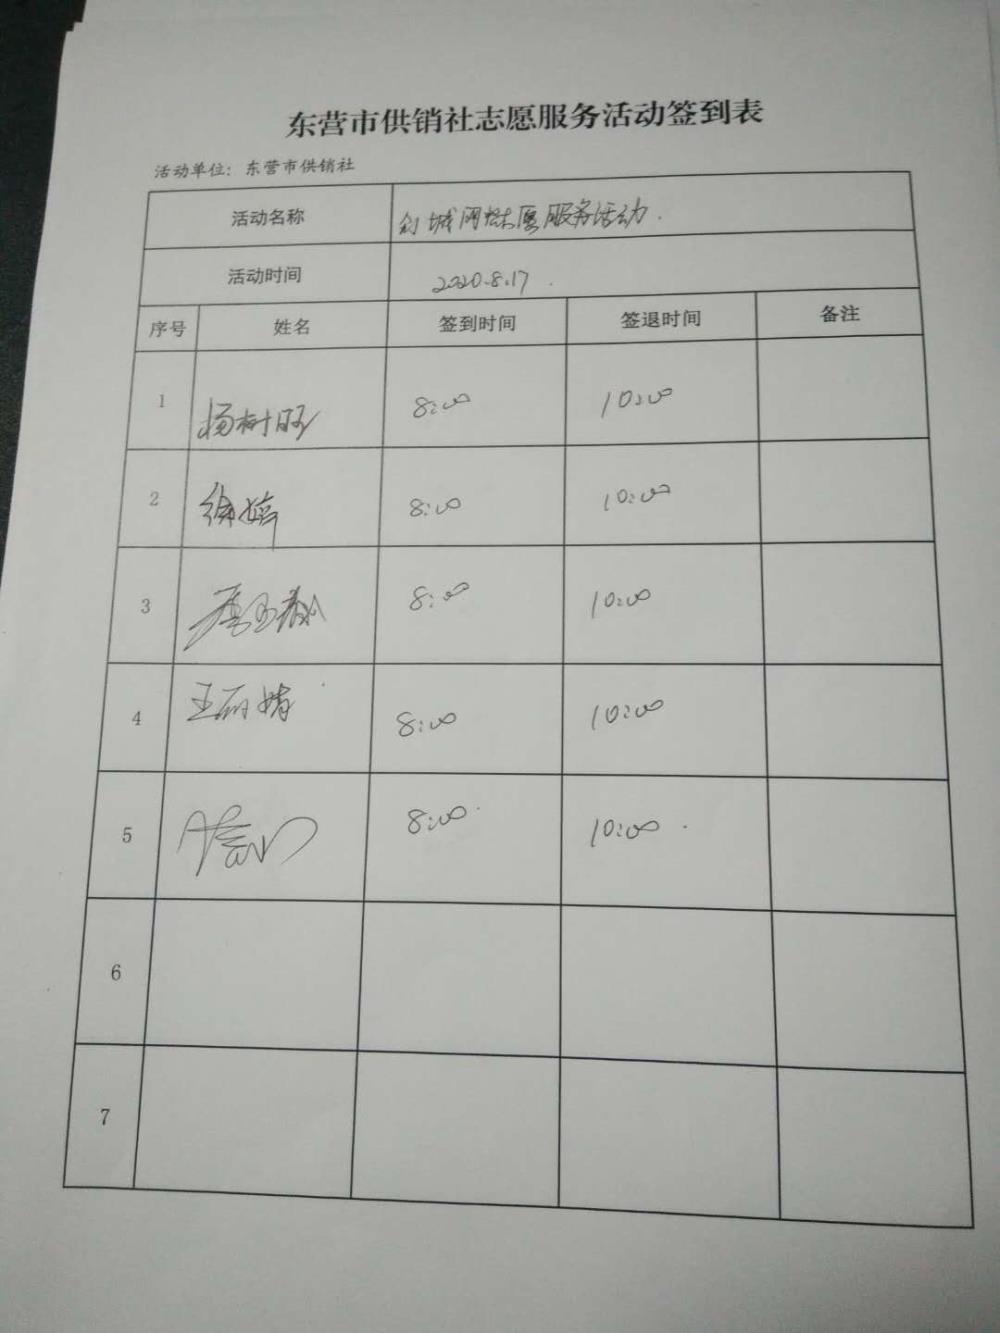 东营市供销社志愿服务活动签到表
活动单位：东营市供销社
活动名称 创城网格志愿服务活动.
活动时间 2020.8.17.
序号 姓名 签到时间 签退时间 备注
1 杨树旺 8:00 10:00
2 徐婷 8:00 10:00
3 8:00 10:00
4 王丽婧 8:00 10:00
5 8:00 10:00
6
7